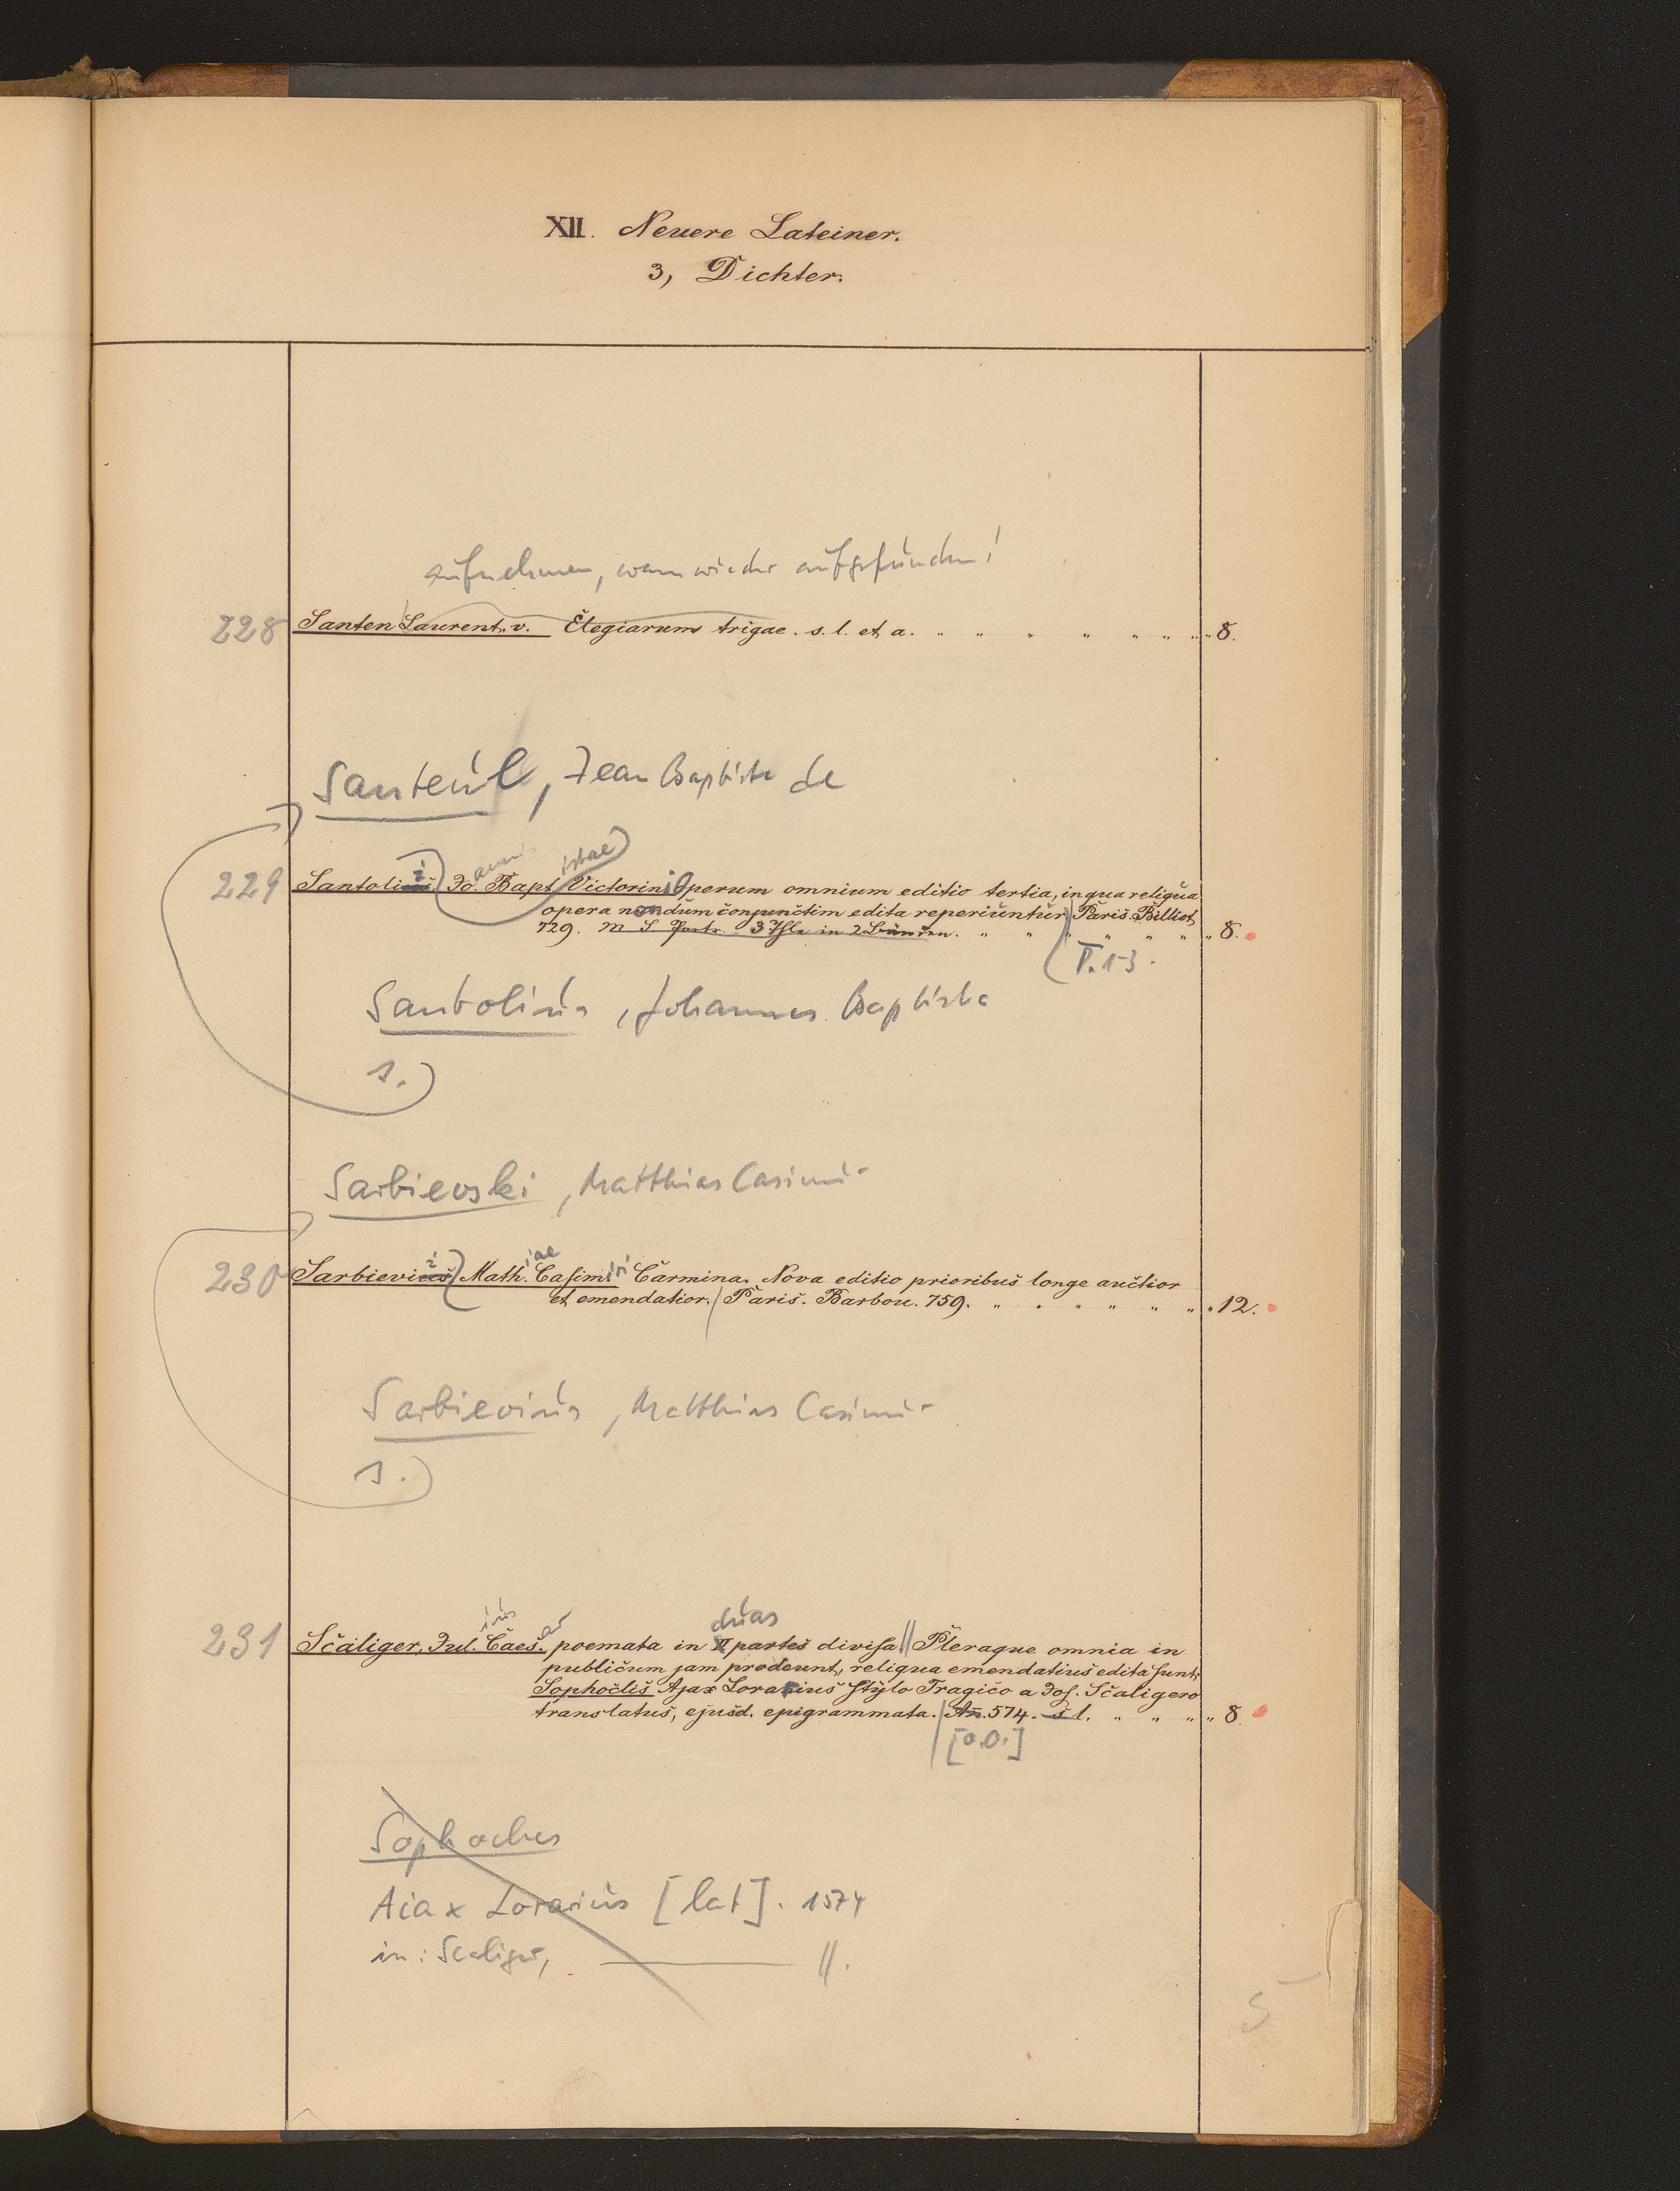 XII. Neuere Lateiner.
3, Dichter.
aufnehmen, wenn wieder aufgefunden!
228 Santen Laurent. v. Elegiarum trigae. s. l. et a. 8.
Santeul, Jean Baptiste de
229 Santolii Jo.annis Bapt.istae Victorini Operum omnium editio tertia, in qua reliqua
opera nondum conjunctim edita reperiuntur Paris. Billiot
729. m 8.
P. 1-3.
Santolius, Johannes Baptista
s.
Sarbievski, Matthias Casimir
230 Sarbievii Math.iae Casimiri Carmina. Nova editio prioribus longe auctior
et emendatior. Paris. Barbou. 759. 12.
Sarbievius, Matthias Casimir
s.
231 Scaliger, Jul.ius Caes.ar poemata in duas partes divisa || Pleraque omnia in
publicum jam prodeunt, reliqua emendatius edita sunt.
Sophoclis Ajax Lorarius stylo Tragico a Jos. Scaligero
translatus, ejusd. epigrammata. An. 574. s l. 8.
[o.O.]
Sophocles
Aiax Lorarius [lat]. 1574
in: Scaliger, —— ||.
5